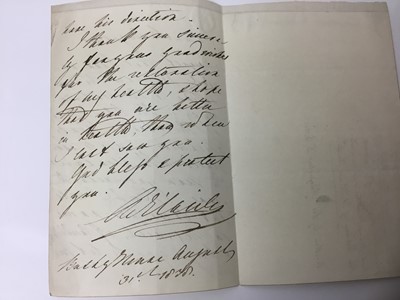 have his direction.
I thank you sincere
ly for your good wishes
for the restoration
of my health, & hope
that you are better
in health than when
I last saw you.
God bless & protect
you.
Bushy House August
31st 1838.